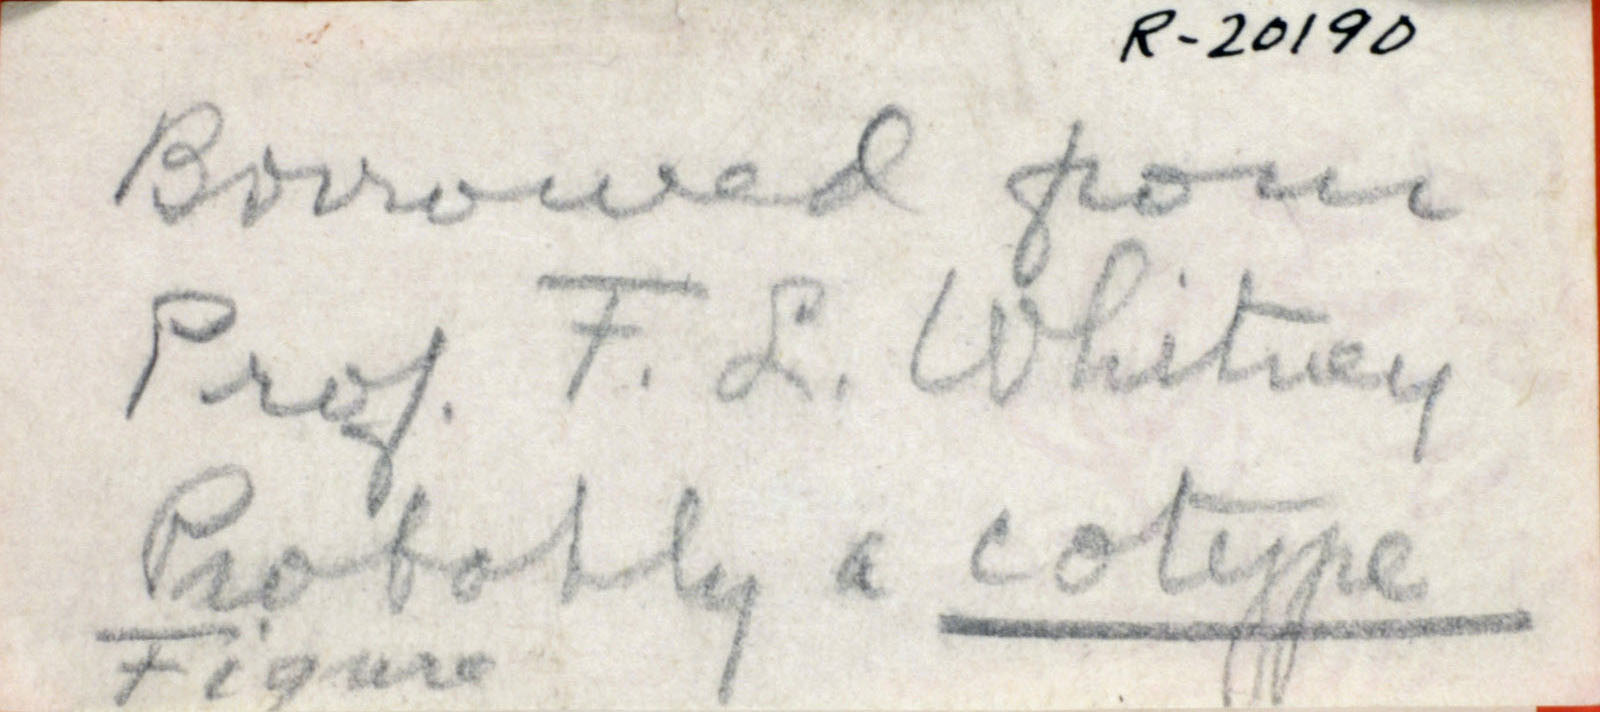 R-20190
Borrowed from
Prof. F. L. Whitney
Probably a cotype
Figure